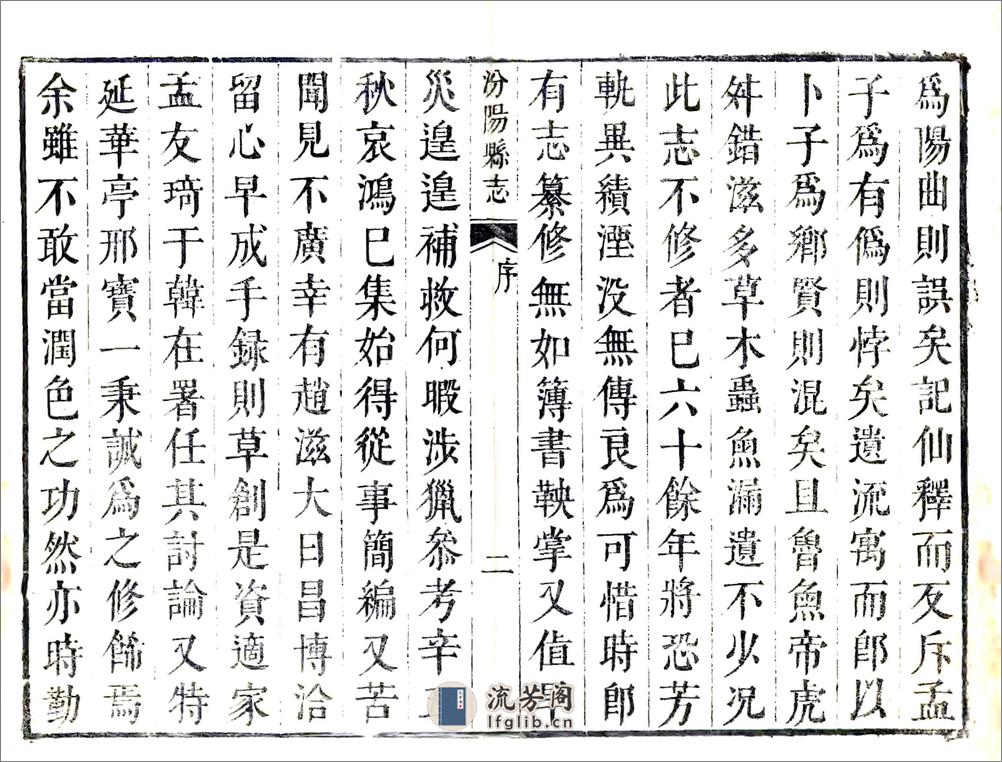 爲陽曲則誤矣記仙釋而反斥孟
子爲有僞則悖矣遺流寓而郎以
卜子爲鄉賢則混矣且魯魚帝虎
舛錯滋多草木蟲魚漏遺不少况
此志不修者已六十餘年將恐芳
軌異績湮没無傳良爲可惜時郎
有志纂修無如簿書鞅掌又值
汾陽縣志
序
二
災遑遑補救何暇涉獵叅考辛
秋哀鴻已集始得從事簡編又苦
聞見不廣幸有趙滋大日昌博洽
留心早成手録則草創是資適家
孟友琦于韓在署任其討論又特
延華亭邢寶一秉誠爲之修飾焉
余雖不敢當潤色之功然亦時勤
流芳阁
lfglib.cn